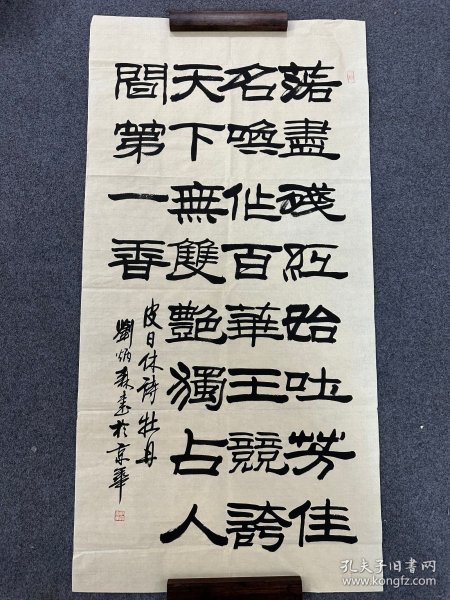 落盡殘紅始吐芳佳
名喚作百華王競誇
天下無雙艷獨占人
間第一香
皮日休詩牡丹
劉炳森書於京華
孔夫子旧书网
www.kongfz.com